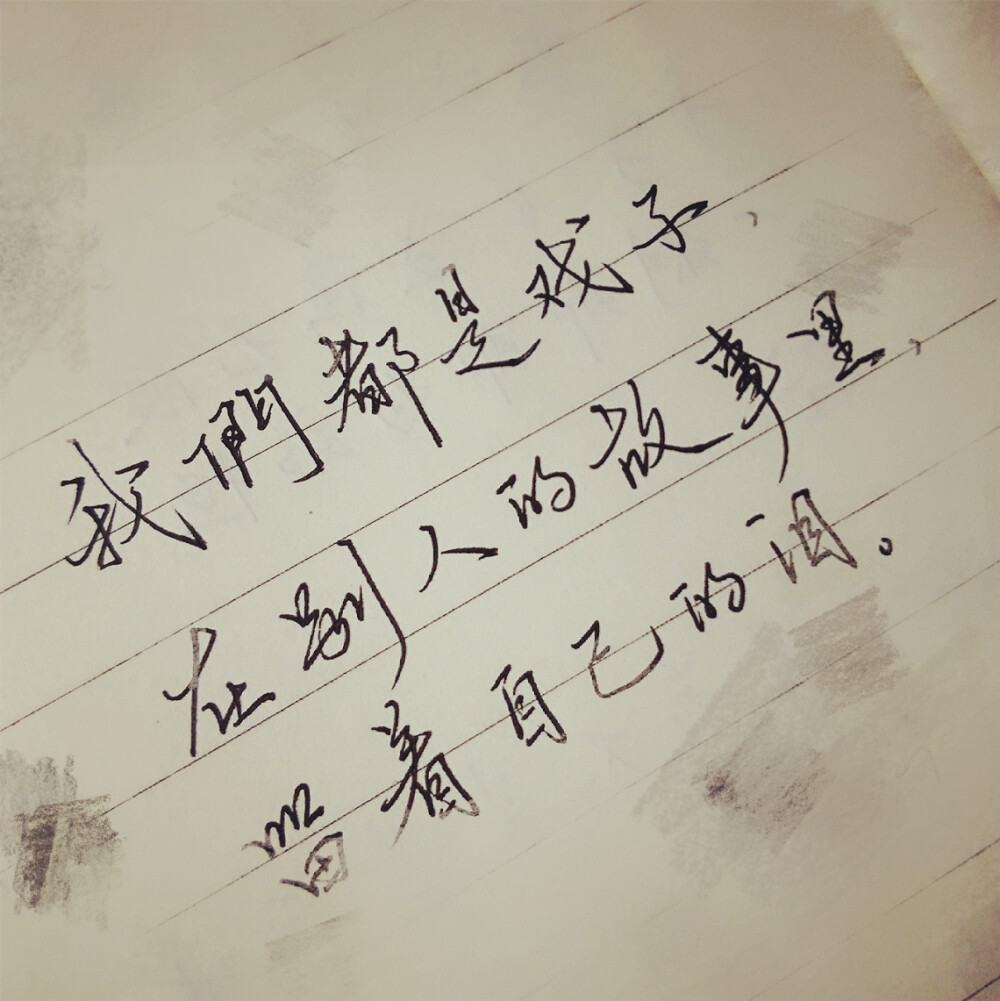 我們都是戏子、
在别人的故事里、
留着自己的泪。